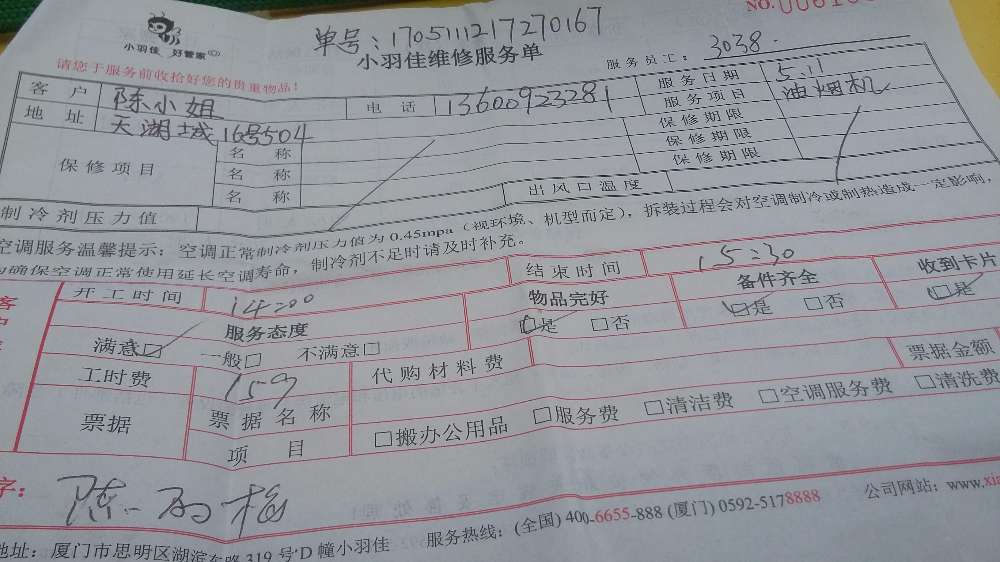 小羽佳 好管家
单号：1705111217270167
NO.
小羽佳维修服务单
服务员工：3038
请您于服务前收拾好您的贵重物品！
客户 陈小姐 电话 13600923281 服务日期 5.11
地址 天湖城16号504 服务项目 油烟机
保修项目 名称 保修期限
名称 保修期限
名称 保修期限
制冷剂压力值 出风口温度
空调服务温馨提示：空调正常制冷剂压力值为0.45mpa（视环境、机型而定），拆装过程会对空调制冷或制热造成一定影响，
确保空调正常使用延长空调寿命，制冷剂不足时请及时补充。
开工时间 14:00 结束时间 15:30
服务态度 物品完好 备件齐全 收到卡片
满意□ 一般□ 不满意□ □是 □否 □是 □否 □是
工时费 159 代购材料费 票据金额
票据 票据名称 □搬办公用品 □服务费 □清洁费 □空调服务费 □清洗费
项目
字：
地址：厦门市思明区湖滨东路319号D幢小羽佳 服务热线：(全国) 400-6655-888 (厦门) 0592-5178888 公司网站：www.xi